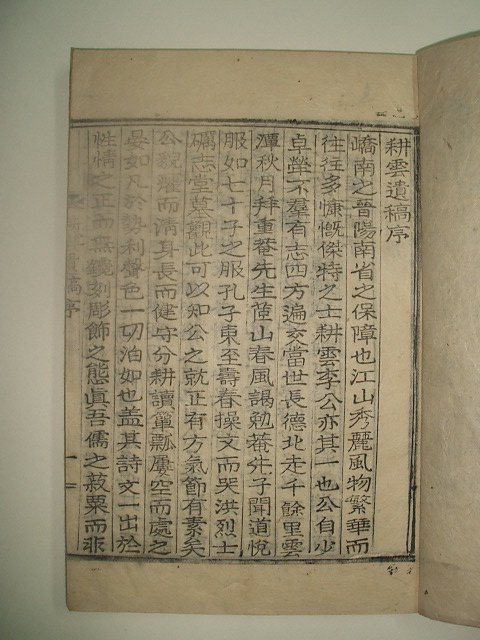 耕雲遺稿序
嶠南之晉陽南省之保障也江山秀麗風物繁華而
往往多慷慨傑特之士耕雲李公亦其一也公自少
卓犖不羣有志四方遍交當世長德北走千餘里雲
潭秋月拜重菴先生山春風謁勉菴夫子聞道悅
服如七十子之服孔子東至壽春操文而哭洪烈士
礪志堂墓觀此可以知公之就正有方氣節有素矣
公貌癯而淸身長而健守分耕讀簞瓢屢空而處之
晏如凡於勢利聲色一切泊如也盖其詩文一出於
性情之正而無鏤刻彫飾之態眞吾儒之菽粟而非
遺稿序 一